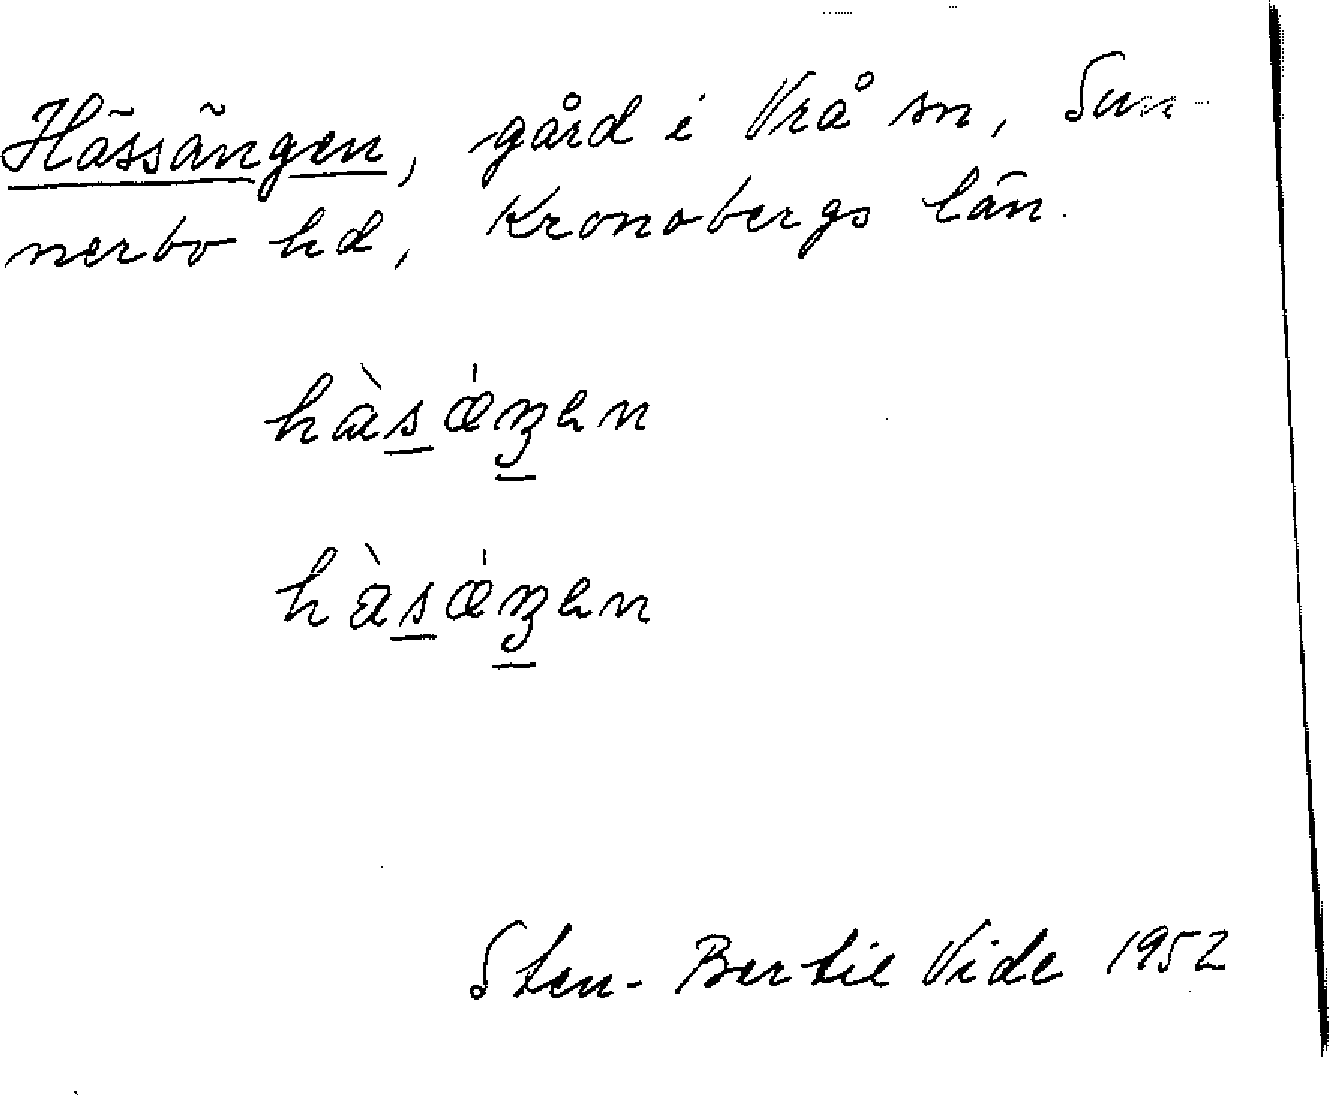 Hässängen, gård i Vrå sn, Sun-
nerbo hd, Kronobergs län.
hàsǽŋen
hàsǽŋen
Sten-Bertil Vide 1952